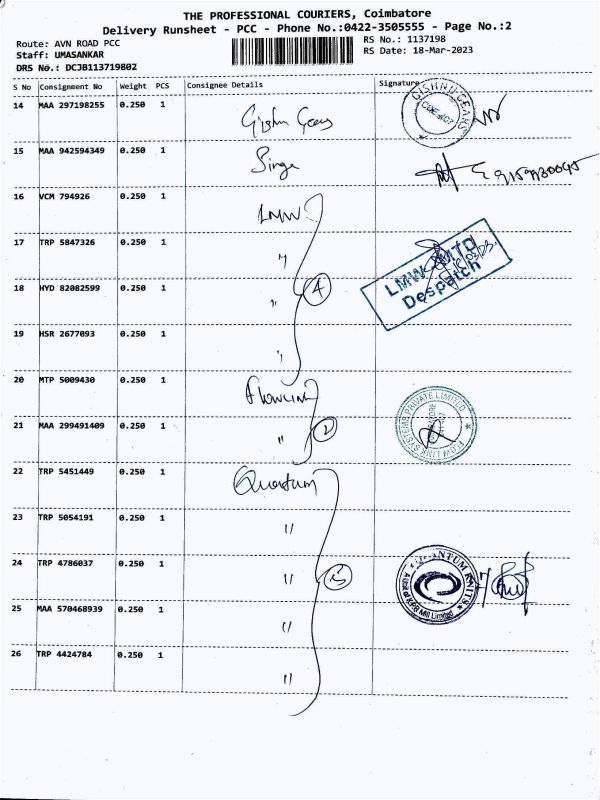 THE PROFESSIONAL COURIERS, Coimbatore
Delivery Runsheet - PCC - Phone No.:0422-3505555 - Page No.:2
Route: AVN ROAD PCC RS No.: 1137198
Staff: UMASANKAR RS Date: 18-Mar-2023
DRS No.: DCJB113719802
S No Consignment No Weight PCS Consignee Details Signature
14 MAA 297198255 0.250 1
15 MAA 942594349 0.250 1
16 VCM 794926 0.250 1 LMW
17 TRP 5847326 0.250 1 "
18 HYD 82082599 0.250 1 " 4
LMW AUTO
Despatch
19 HSR 2677093 0.250 1 "
20 MTP 5009430 0.250 1 Flowlink
21 MAA 299491409 0.250 1 " 2
FLOW LINK SYSTEMS PRIVATE LIMITED
22 TRP 5451449 0.250 1 Quantum
23 TRP 5054191 0.250 1 "
24 TRP 4786037 0.250 1 " 5
QUANTUM KNITS
A unit of KPR Mill Limited
25 MAA 570468939 0.250 1 "
26 TRP 4424784 0.250 1 "